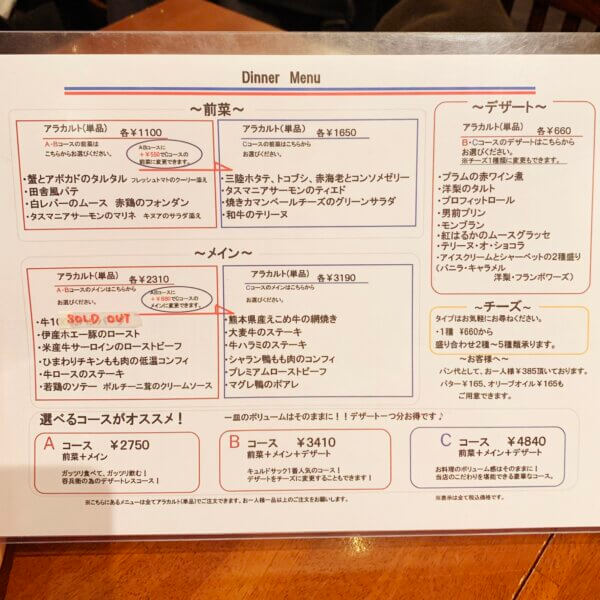 Dinner Menu
～前菜～
アラカルト(単品) 各¥1100
A・Bコースの前菜は
こちらからお選びください。
ABコースに
+¥550でCコースの
前菜に変更できます。
・蟹とアボカドのタルタル フレッシュトマトのクーリー添え
・田舎風パテ
・白レバーのムース 赤鶏のフォンダン
・タスマニアサーモンのマリネ キヌアのサラダ添え
アラカルト(単品) 各¥1650
Cコースの前菜はこちらから
お選びください。
・三陸ホタテ、トコブシ、赤海老とコンソメゼリー
・タスマニアサーモンのティエド
・焼きカマンベールチーズのグリーンサラダ
・和牛のテリーヌ
～メイン～
アラカルト(単品) 各¥2310
A・Bコースのメインはこちらから
お選びください。
ABコースに
+¥880でCコースの
メインに変更できます。
・牛 SOLD OUT
・伊産ホエー豚のロースト
・米産牛サーロインのローストビーフ
・ひまわりチキンもも肉の低温コンフィ
・牛ロースのステーキ
・若鶏のソテー ポルチーニ茸のクリームソース
アラカルト(単品) 各¥3190
Cコースのメインはこちらから
お選びください。
・熊本県産えこめ牛の網焼き
・大麦牛のステーキ
・牛ハラミのステーキ
・シャラン鴨もも肉のコンフィ
・プレミアムローストビーフ
・マグレ鴨のポアレ
～デザート～
アラカルト(単品) 各¥660
B・Cコースのデザートはこちらから
お選びください。
※チーズ1種類に変更もできます。
・プラムの赤ワイン煮
・洋梨のタルト
・プロフィットロール
・男前プリン
・モンブラン
・紅はるかのムースグラッセ
・テリーヌ・オ・ショコラ
・アイスクリームとシャーベットの2種盛り
(バニラ・キャラメル
洋梨・フランボワーズ)
～チーズ～
タイプはお気軽にお尋ねください。
・1種 ¥660から
盛り合わせ2種～5種類承ります。
～お客様へ～
パン代として、お一人様¥385頂いております。
バター¥165、オリーブオイル¥165も
ご用意できます。
選べるコースがオススメ！ 一皿のボリュームはそのままに！！デザート一つ分お得です♪
A コース ¥2750
前菜＋メイン
ガッツリ食べて、ガッツリ飲む！
呑兵衛の為のデザートレスコース！
B コース ¥3410
前菜＋メイン＋デザート
キュルドサック1番人気のコース！
デザートをチーズに変更することもできます！
C コース ¥4840
前菜＋メイン＋デザート
お料理のボリューム感はそのままに！
当店のこだわりを堪能できる豪華なコース。
※こちらにあるメニューは全てアラカルト(単品)でご注文できます。お一人様一品以上のご注文をお願いします。
※表示は全て税込価格です。